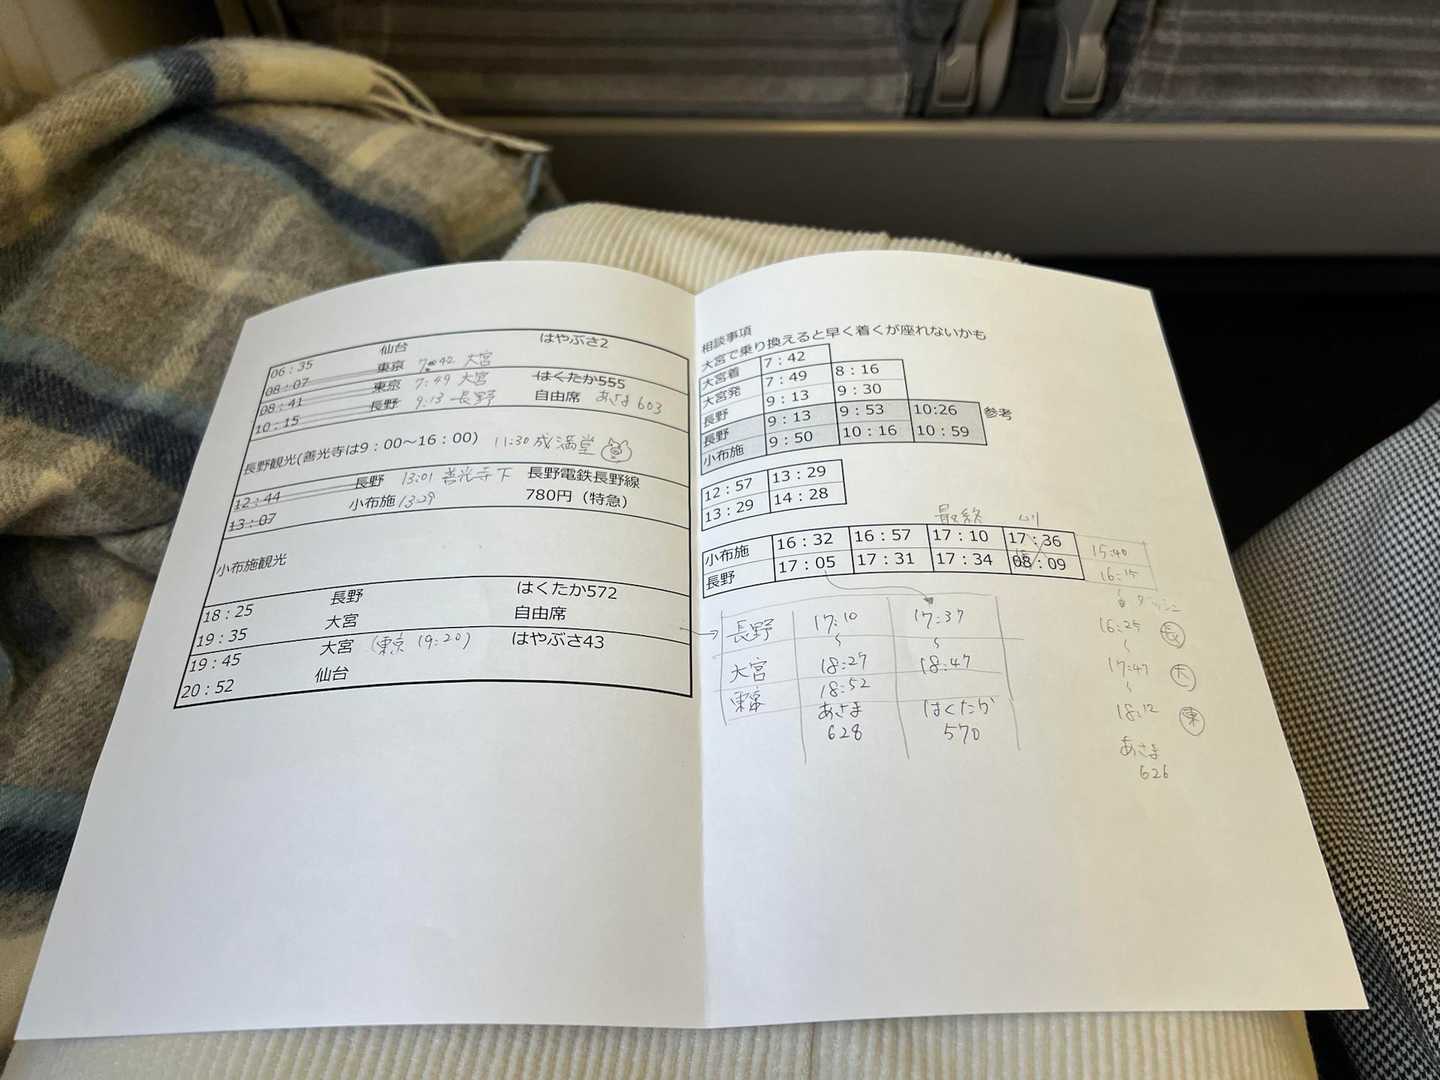 06：35 仙台 はやぶさ2
08：07 東京 7：42 大宮
08：41 東京 7：49 大宮 はくたか555
10：15 長野 9：13 長野 自由席 あさま603
長野観光(善光寺は9：00～16：00) 11:30 成満堂
12：44 長野 13:01 善光寺下 長野電鉄長野線
13：07 小布施 13:29 780円（特急）
小布施観光
18：25 長野 はくたか572
19：35 大宮 自由席
19：45 大宮 (東京 19:20) はやぶさ43
20：52 仙台
相談事項
大宮で乗り換えると早く着くが座れないかも
大宮着 7：42
大宮発 7：49 8：16
長野 9：13 9：30
長野 9：13 9：53 10:26 参考
小布施 9：50 10：16 10：59
12：57 13：29
13：29 14：28
最終
小布施 16：32 16：57 17：10 17：36 15:40
長野 17：05 17：31 17：34 08：09 16:15
長野 17:10 17:37
大宮 18:27 18:47
東京 18:52
あさま はくたか
628 570
16:25 長
17:47 大
18:12 東
あさま
626